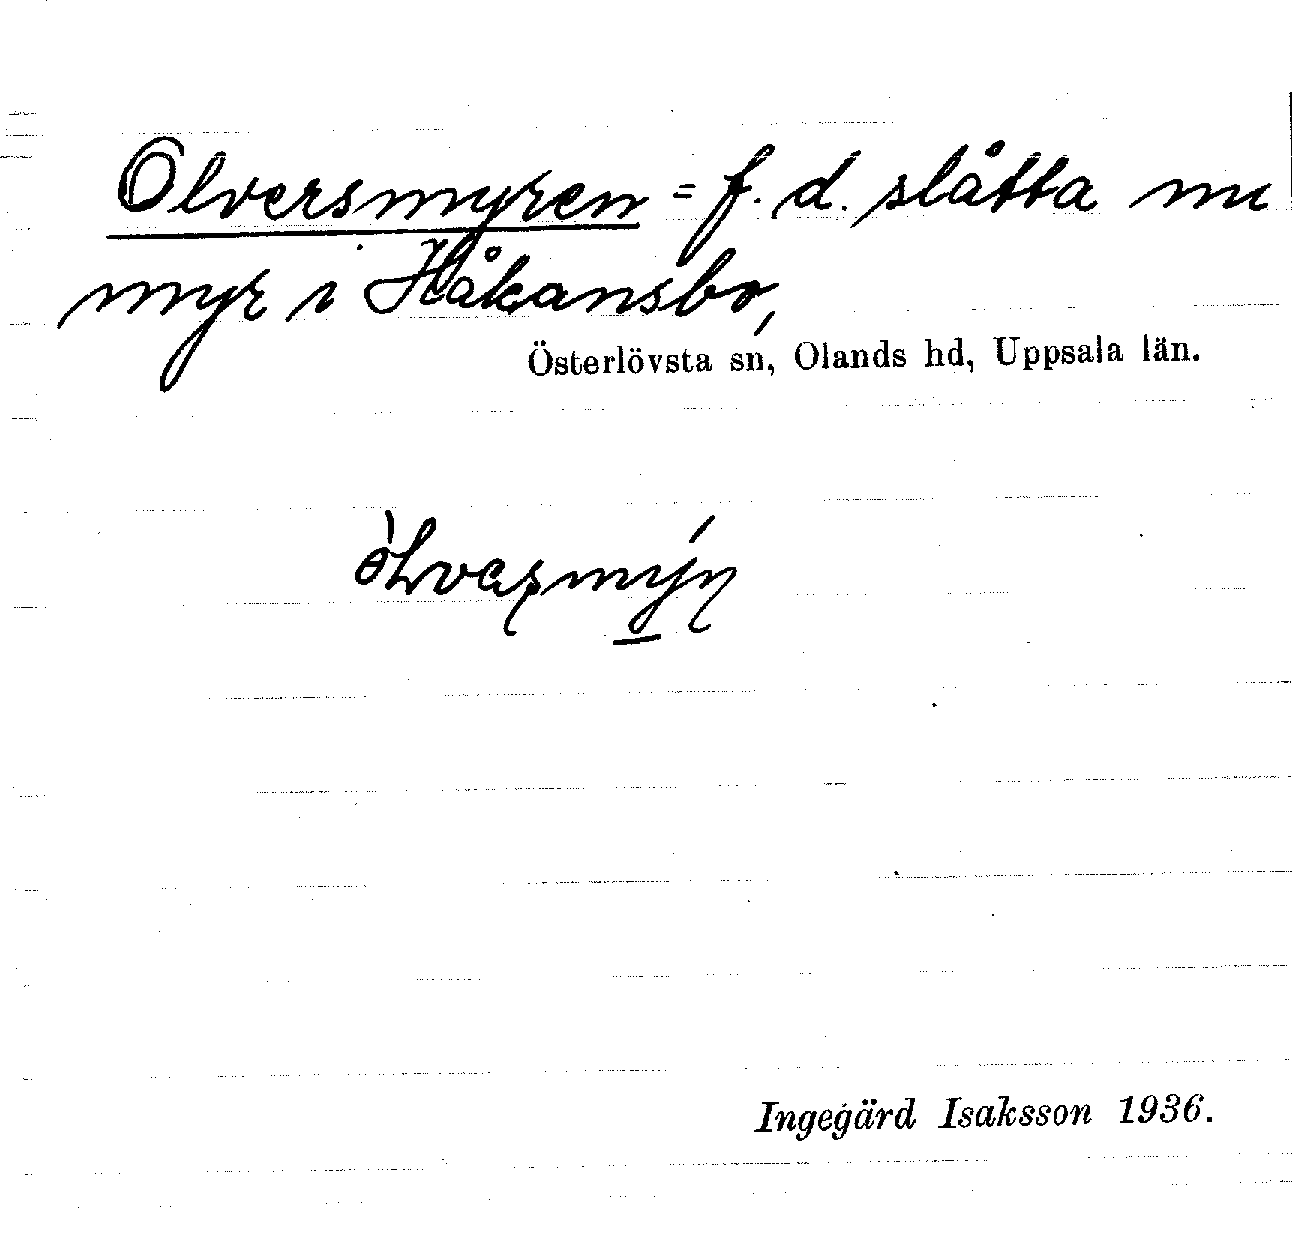 Olversmyren = f. d. slåtta
myr i Håkansbo,
Österlövsta sn, Olands hd, Uppsala län.
Ingegärd Isaksson 1936.